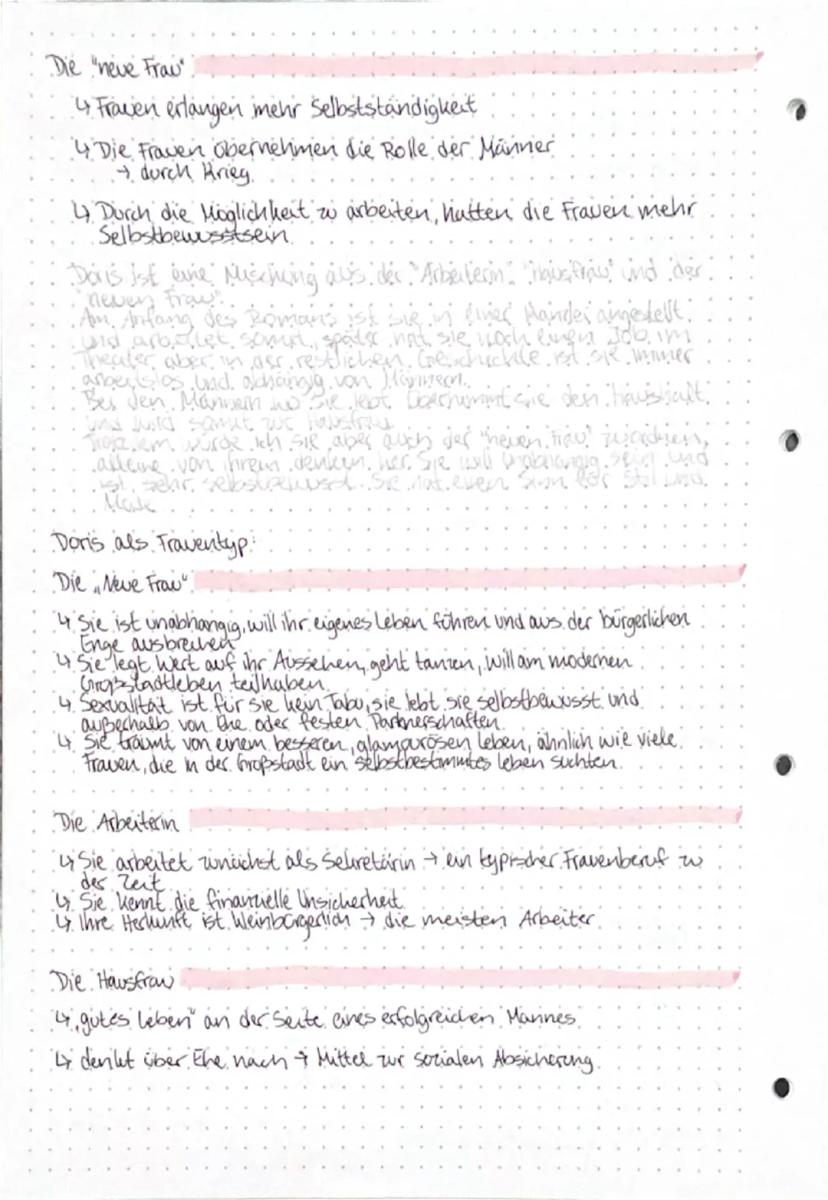 Die "neue Frau"
↳ Frauen erlangen mehr Selbstständigkeit
↳ Die Frauen übernehmen die Rolle der Männer
→ durch Krieg
↳ Durch die Möglichkeit zu arbeiten, hatten die Frauen mehr
Selbstbewusstsein
Doris ist eine Mischung aus der "Arbeiterin", "Hausfrau" und der
"neuen Frau".
Am Anfang des Romans ist sie in einer Kanzlei angestellt
und arbeitet somit, später hat sie noch einen Job im
Theater, aber in der restlichen Geschichte ist sie immer
arbeitslos und abhängig von Männern.
Bei den Männern wo sie lebt übernimmt sie den Haushalt
und wird somit zur Hausfrau
Trotzdem würde ich sie aber auch der "neuen Frau" zuordnen,
alleine von ihrem denken her. Sie will unabhängig sein und
ist sehr selbstbewusst. Sie hat einen Sinn für Stil und
Mode
Doris als Frauentyp:
Die „Neue Frau"
↳ Sie ist unabhängig, will ihr eigenes Leben führen und aus der bürgerlichen
Enge ausbrechen
↳ Sie legt Wert auf ihr Aussehen, geht tanzen, will am modernen
Großstadtleben teilhaben
↳ Sexualität ist für sie kein Tabu, sie lebt sie selbstbewusst und
außerhalb von Ehe oder festen Partnerschaften
↳ Sie träumt von einem besseren, glamourösen Leben, ähnlich wie viele
Frauen, die in der Großstadt ein selbstbestimmtes Leben suchten
Die Arbeiterin
↳ Sie arbeitet zunächst als Sekretärin → ein typischer Frauenberuf zu
der Zeit
↳ Sie kennt die finanzielle Unsicherheit
↳ Ihre Herkunft ist kleinbürgerlich → die meisten Arbeiter
Die Hausfrau
↳ „gutes Leben" an der Seite eines erfolgreichen Mannes
↳ denkt über Ehe nach → Mittel zur sozialen Absicherung